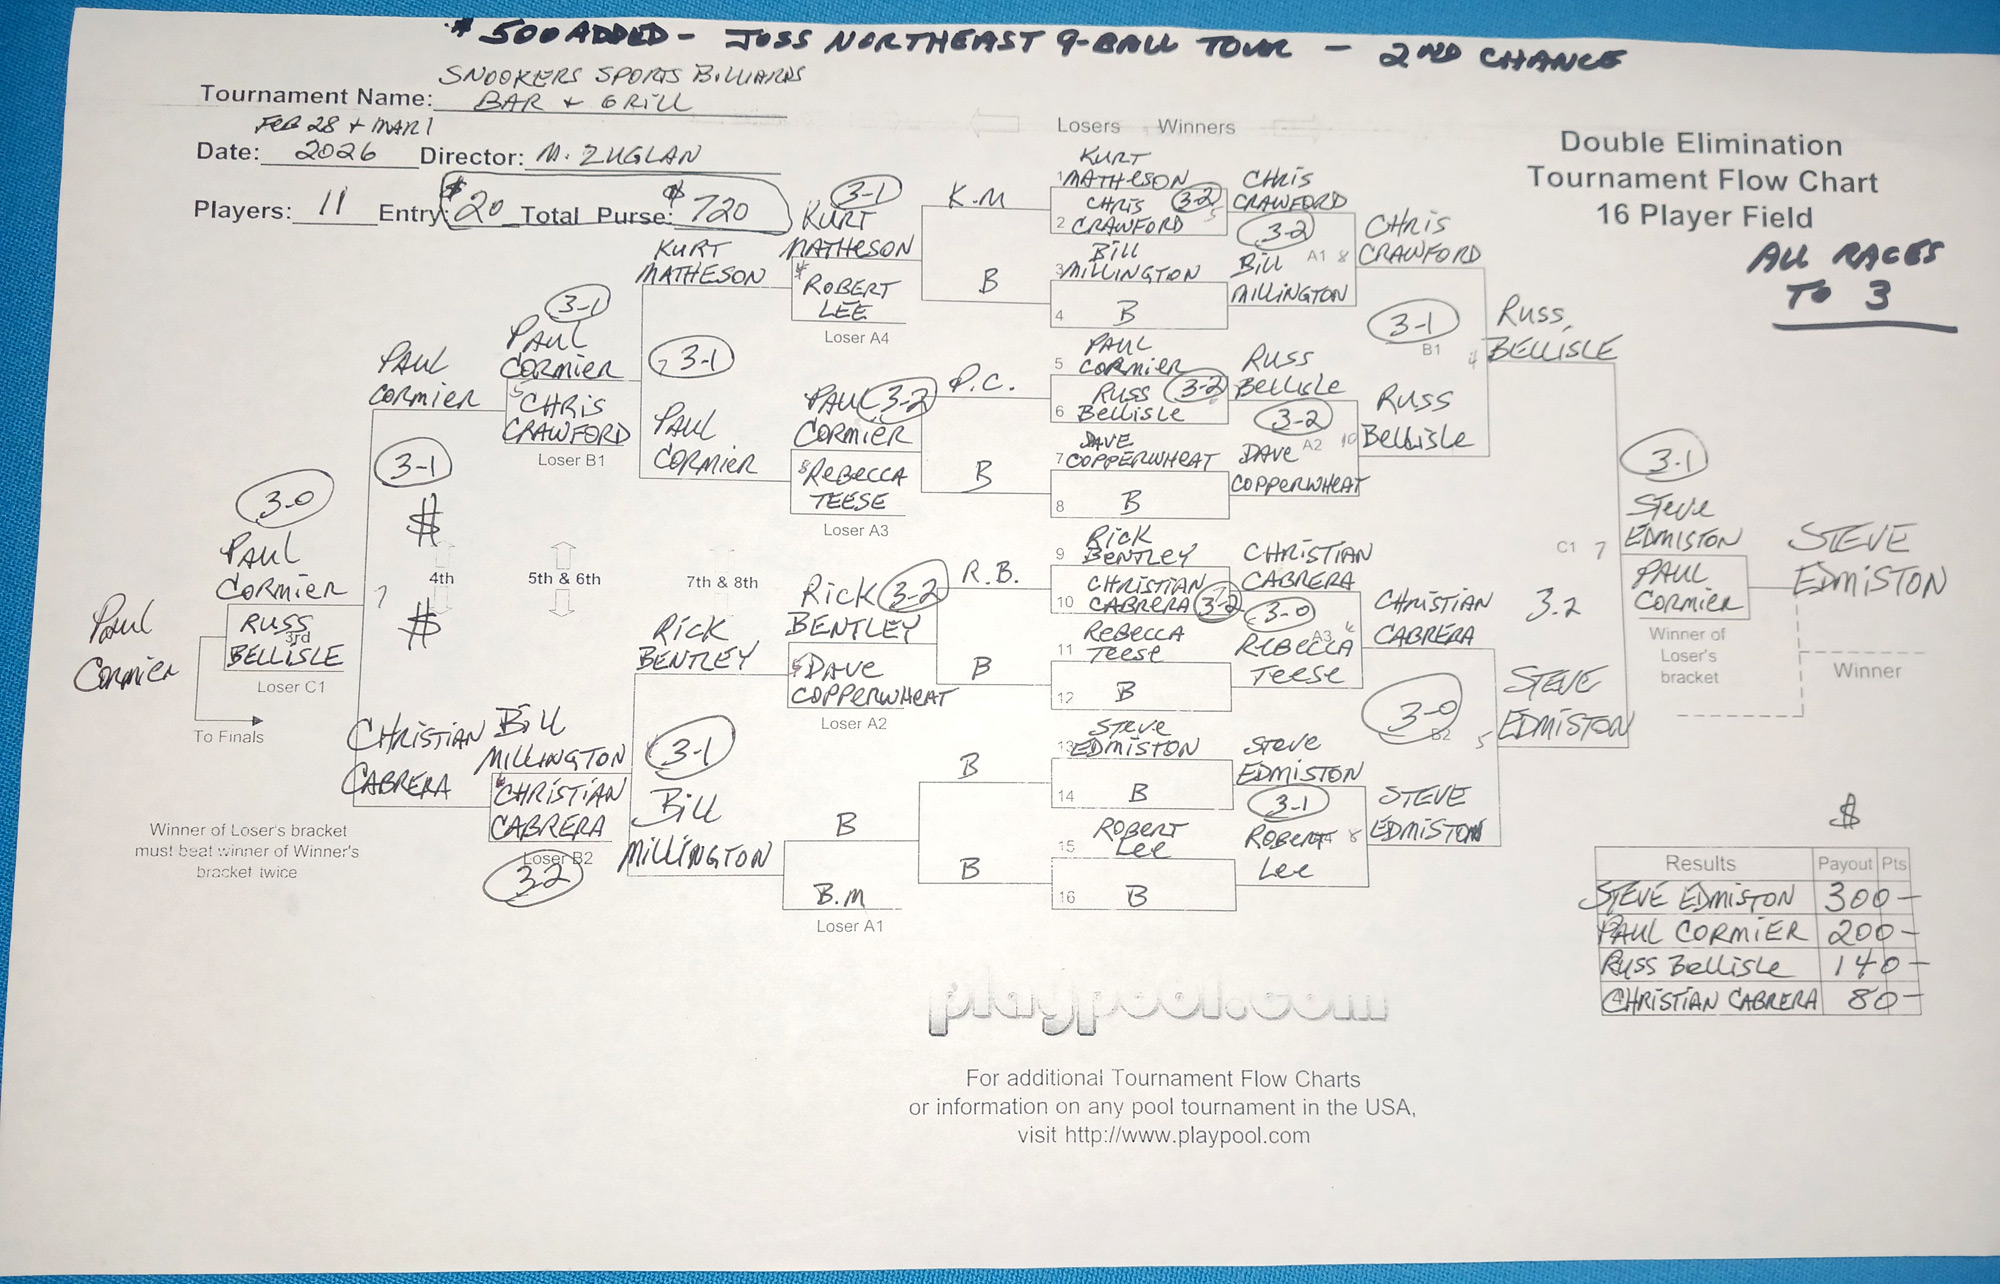 $500 ADDED - JOSS NORTHEAST 9-BALL TOUR - 2ND CHANCE
SNOOKERS SPORTS BILLIARDS
Tournament Name: BAR + GRILL
FEB 28 + MAR 1
Date: 2026 Director: M. ZUGLAN
Players: 11 Entry: $20 Total Purse: $720
Losers Winners
Double Elimination
Tournament Flow Chart
16 Player Field
ALL RACES
TO 3
KURT
1 MATHESON
CHRIS 3-2
2 CRAWFORD
BILL
3 MILLINGTON
4 B
PAUL
5 CORMIER
RUSS 3-2
6 BELLISLE
DAVE
7 COPPERWHEAT
8 B
RICK
9 BENTLEY
CHRISTIAN
10 CABRERA 3-2
REBECCA
11 TEESE
12 B
STEVE
13 EDMISTON
14 B
ROBERT
15 LEE
16 B
CHRIS
CRAWFORD
3-2
A1 8
BILL
MILLINGTON
RUSS
BELLISLE
3-2
A2 10
DAVE
COPPERWHEAT
CHRISTIAN
CABRERA
3-0
A3
REBECCA
TEESE
STEVE
EDMISTON
3-1
ROBERT
LEE
8
CHRIS
CRAWFORD
3-1
B1
4
RUSS
BELLISLE
CHRISTIAN
CABRERA
3-0
B2
5
STEVE
EDMISTON
RUSS
BELLISLE
3-1
C1 7
3-2
STEVE
EDMISTON
STEVE
EDMISTON
PAUL
CORMIER
Winner of
Loser's
bracket
STEVE
EDMISTON
Winner
K.M
B
P.C.
B
R.B.
B
B
B
3-1
KURT
MATHESON
ROBERT
LEE
Loser A4
PAUL 3-2
CORMIER
8 REBECCA
TEESE
Loser A3
RICK 3-2
BENTLEY
DAVE
COPPERWHEAT
Loser A2
B
B.M
Loser A1
KURT
MATHESON
7 3-1
PAUL
CORMIER
7th & 8th
RICK
BENTLEY
3-1
BILL
MILLINGTON
3-1
PAUL
CORMIER
5 CHRIS
CRAWFORD
Loser B1
5th & 6th
BILL
MILLINGTON
CHRISTIAN
CABRERA
Loser B2
3-2
PAUL
CORMIER
3-1
$
4th
$
7
CHRISTIAN
CABRERA
3-0
PAUL
CORMIER
RUSS
3rd
BELLISLE
Loser C1
PAUL
CORMIER
To Finals
Winner of Loser's bracket
must beat winner of Winner's
bracket twice
$
Results Payout Pts
STEVE EDMISTON 300-
PAUL CORMIER 200-
RUSS BELLISLE 140-
CHRISTIAN CABRERA 80-
playpool.com
For additional Tournament Flow Charts
or information on any pool tournament in the USA,
visit http://www.playpool.com